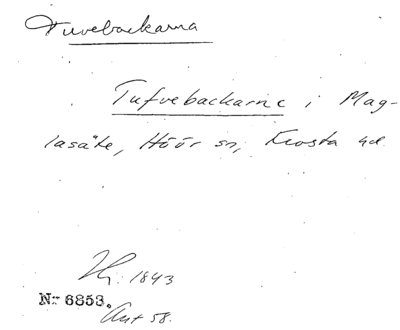 Tuvebackarna
Tufvebackarne i Mag-
lasäte, Höör sn, Frosta hd
Hy. 1843
No 6853.
Ant 58.